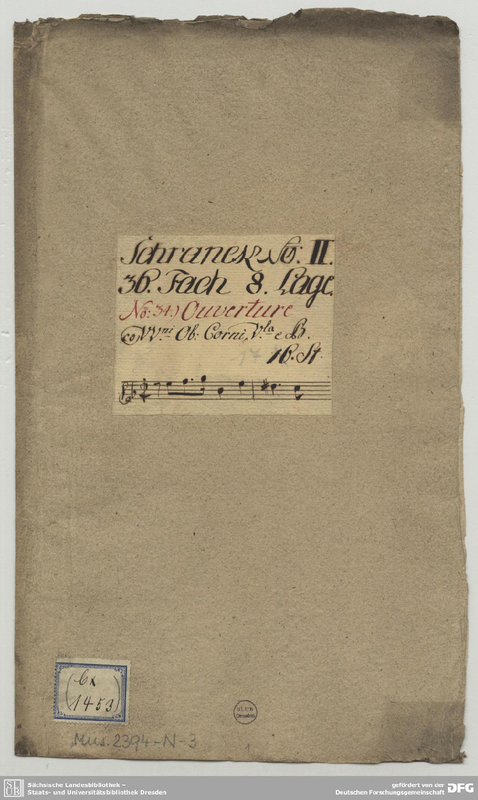 Schranck No: II.
36. Fach 8. Lage
No: 34.) Ouverture
co VV.ni Ob: Corni, V.la e B.
16. St.
Cx
1453
SLUB
Dresden
Mus. 2394-N-3
SLUB
Sächsische Landesbibliothek –
Staats- und Universitätsbibliothek Dresden
gefördert von der
Deutschen Forschungsgemeinschaft
DFG